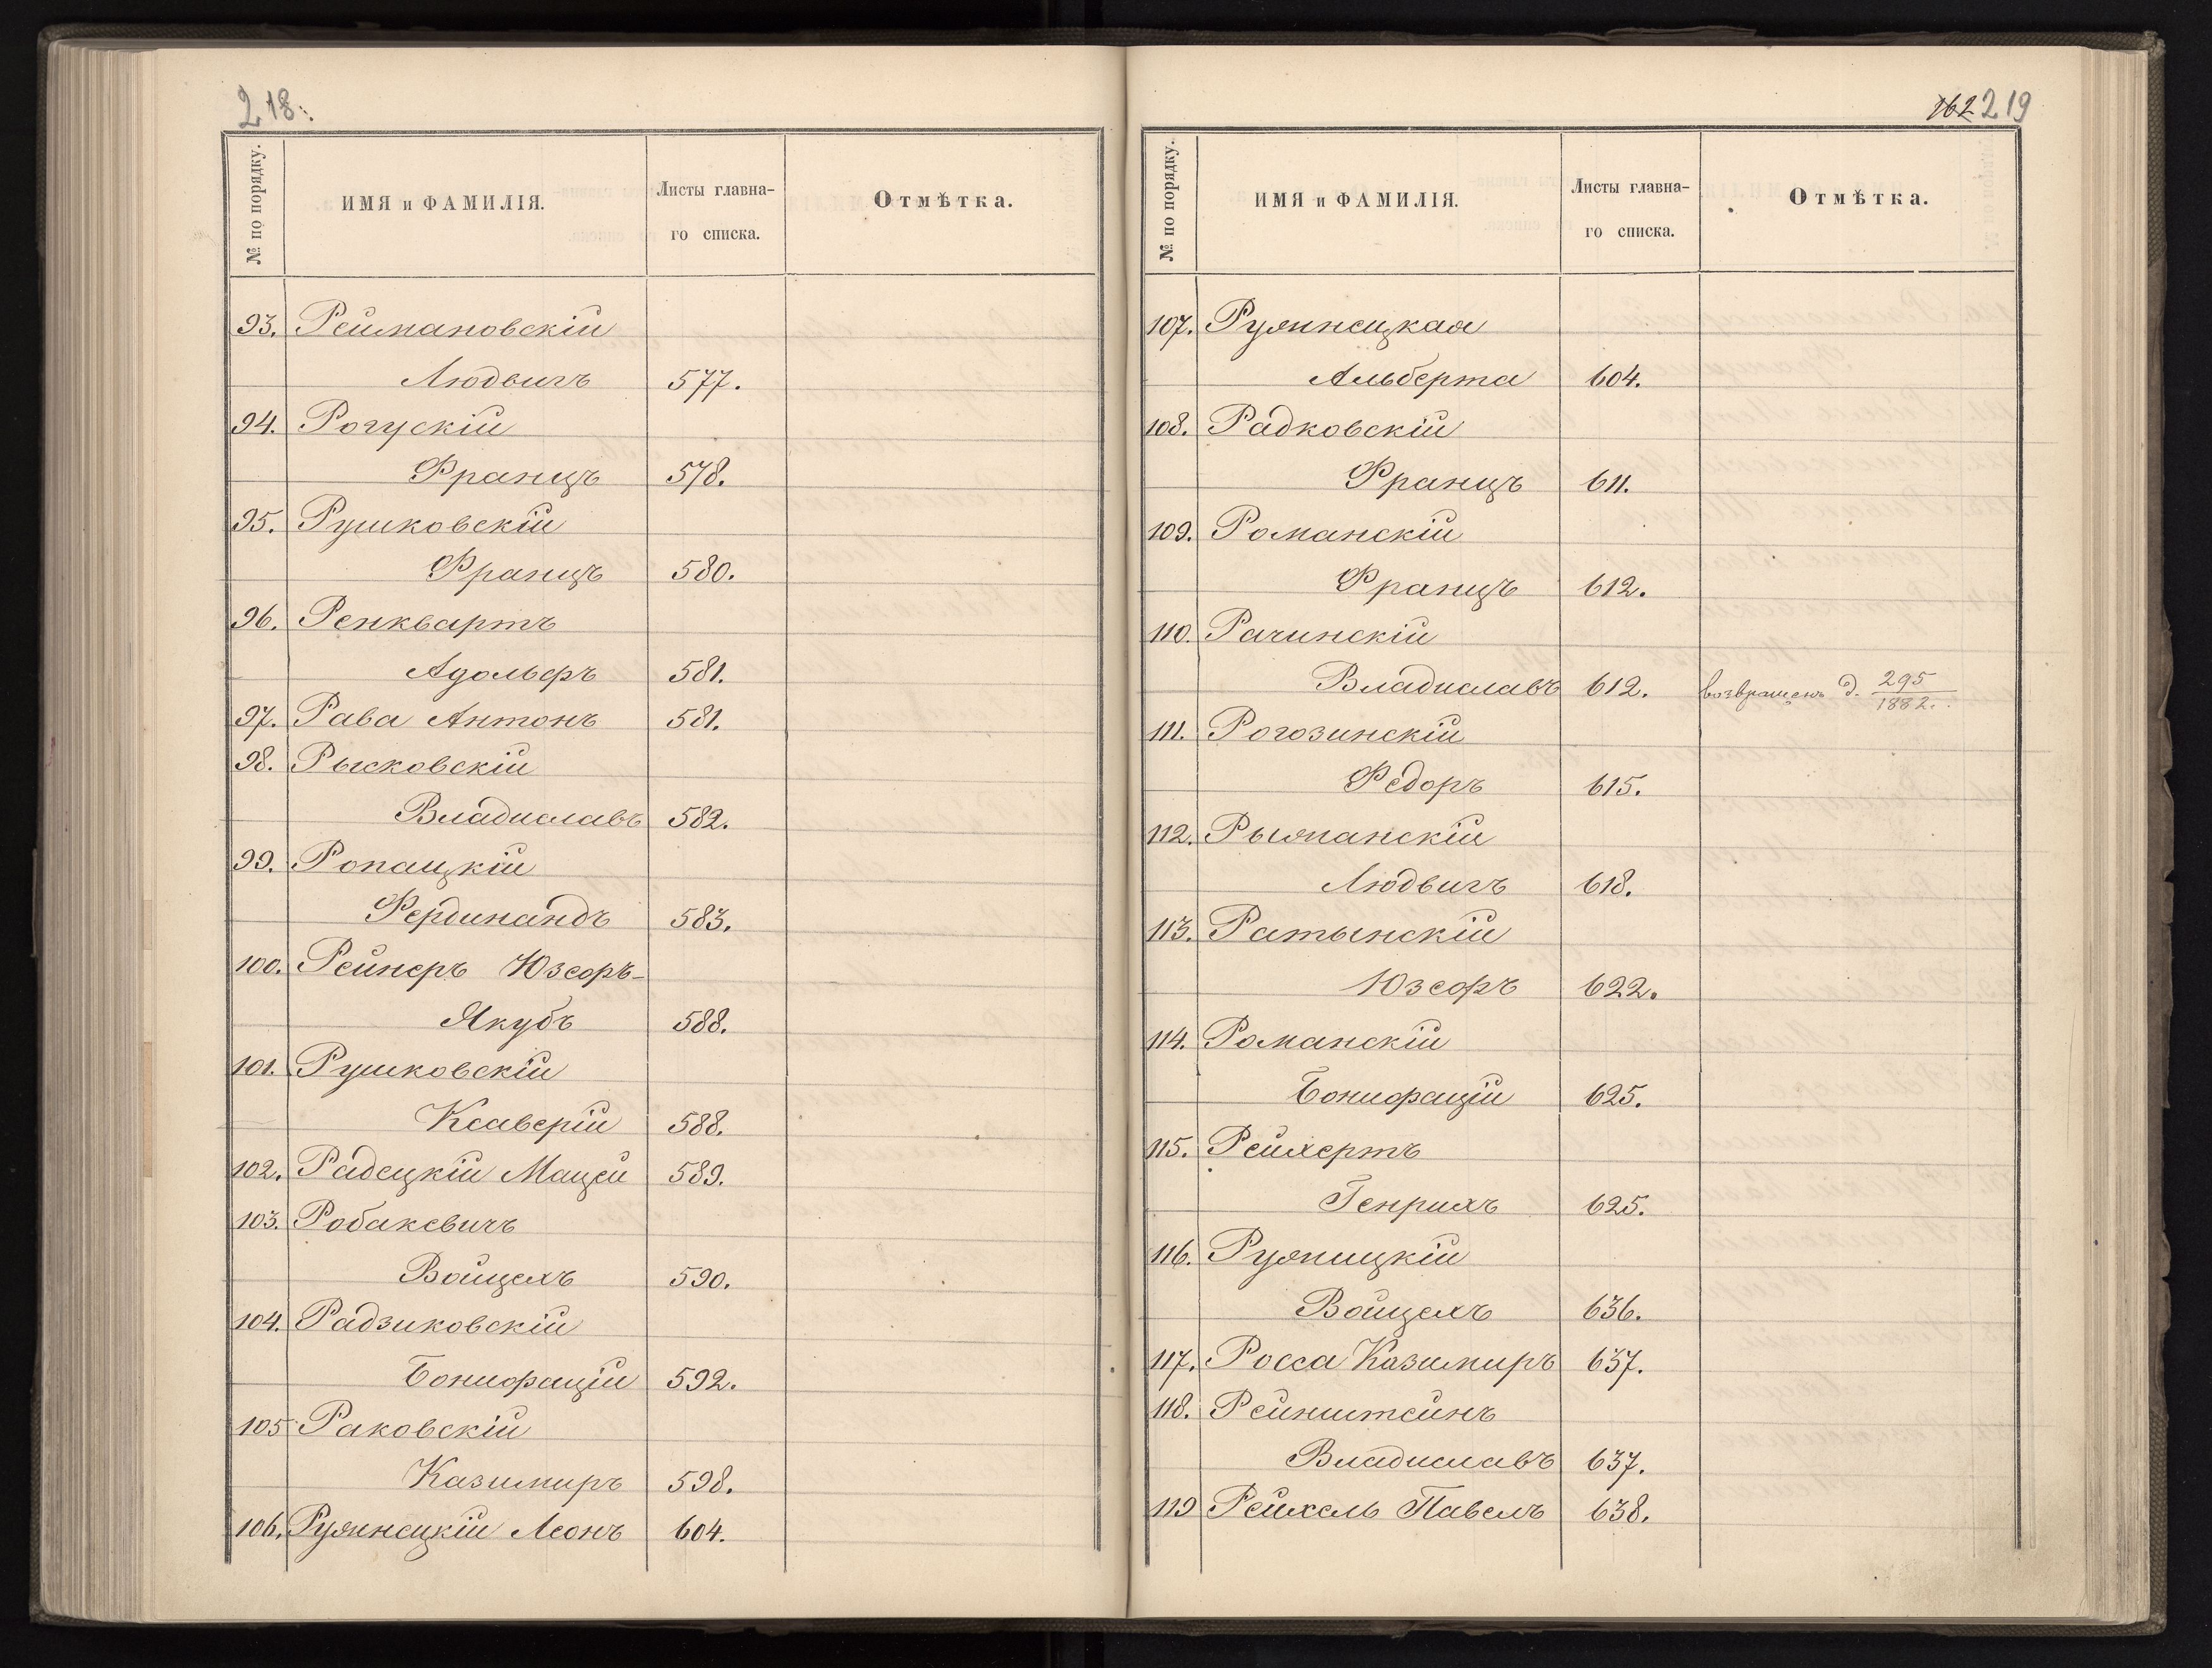 218.
№ по порядку.
ИМЯ и ФАМИЛІЯ.
Листы главна-
го списка.
Отмѣтка.
93. Реймановскій
Людвигъ 577.
94. Рогускій
Францъ 578.
95. Рушковскій
Францъ 580.
96. Ренквартъ
Адольфъ 581.
97. Рава Антонъ 581.
98. Рысковскій
Владиславъ 582.
99. Ропацкій
Фердинандъ 583.
100. Рейнеръ Юзефъ-
Якубъ 588.
101. Рушковскій
Ксаверій 588.
102. Радецкій Мацей 589.
103. Робакевичъ
Войцехъ 590.
104. Радзиковскій
Бонифацій 592.
105 Раковскій
Казимиръ 598.
106. Ружнецкій Леонъ 604.
162 219
№ по порядку.
ИМЯ и ФАМИЛІЯ.
Листы главна-
го списка.
Отмѣтка.
107. Ружнецкая
Альберта 604.
108. Радковскій
Францъ 611.
109. Романскій
Францъ 612.
110. Рачинскій
Владиславъ 612. возвращенъ д. 295
1882.
111. Рогозинскій
Федоръ 615.
112. Рыжанскій
Людвигъ 618.
113. Ратынскій
Юзефъ 622.
114. Романскій
Бонифацій 625.
115. Рейхертъ
Генрихъ 625.
116. Ружицкій
Войцехъ 636.
117. Росса Казимиръ 637.
118. Рейнштейнъ
Владиславъ 637.
119 Рейхель Павелъ 638.